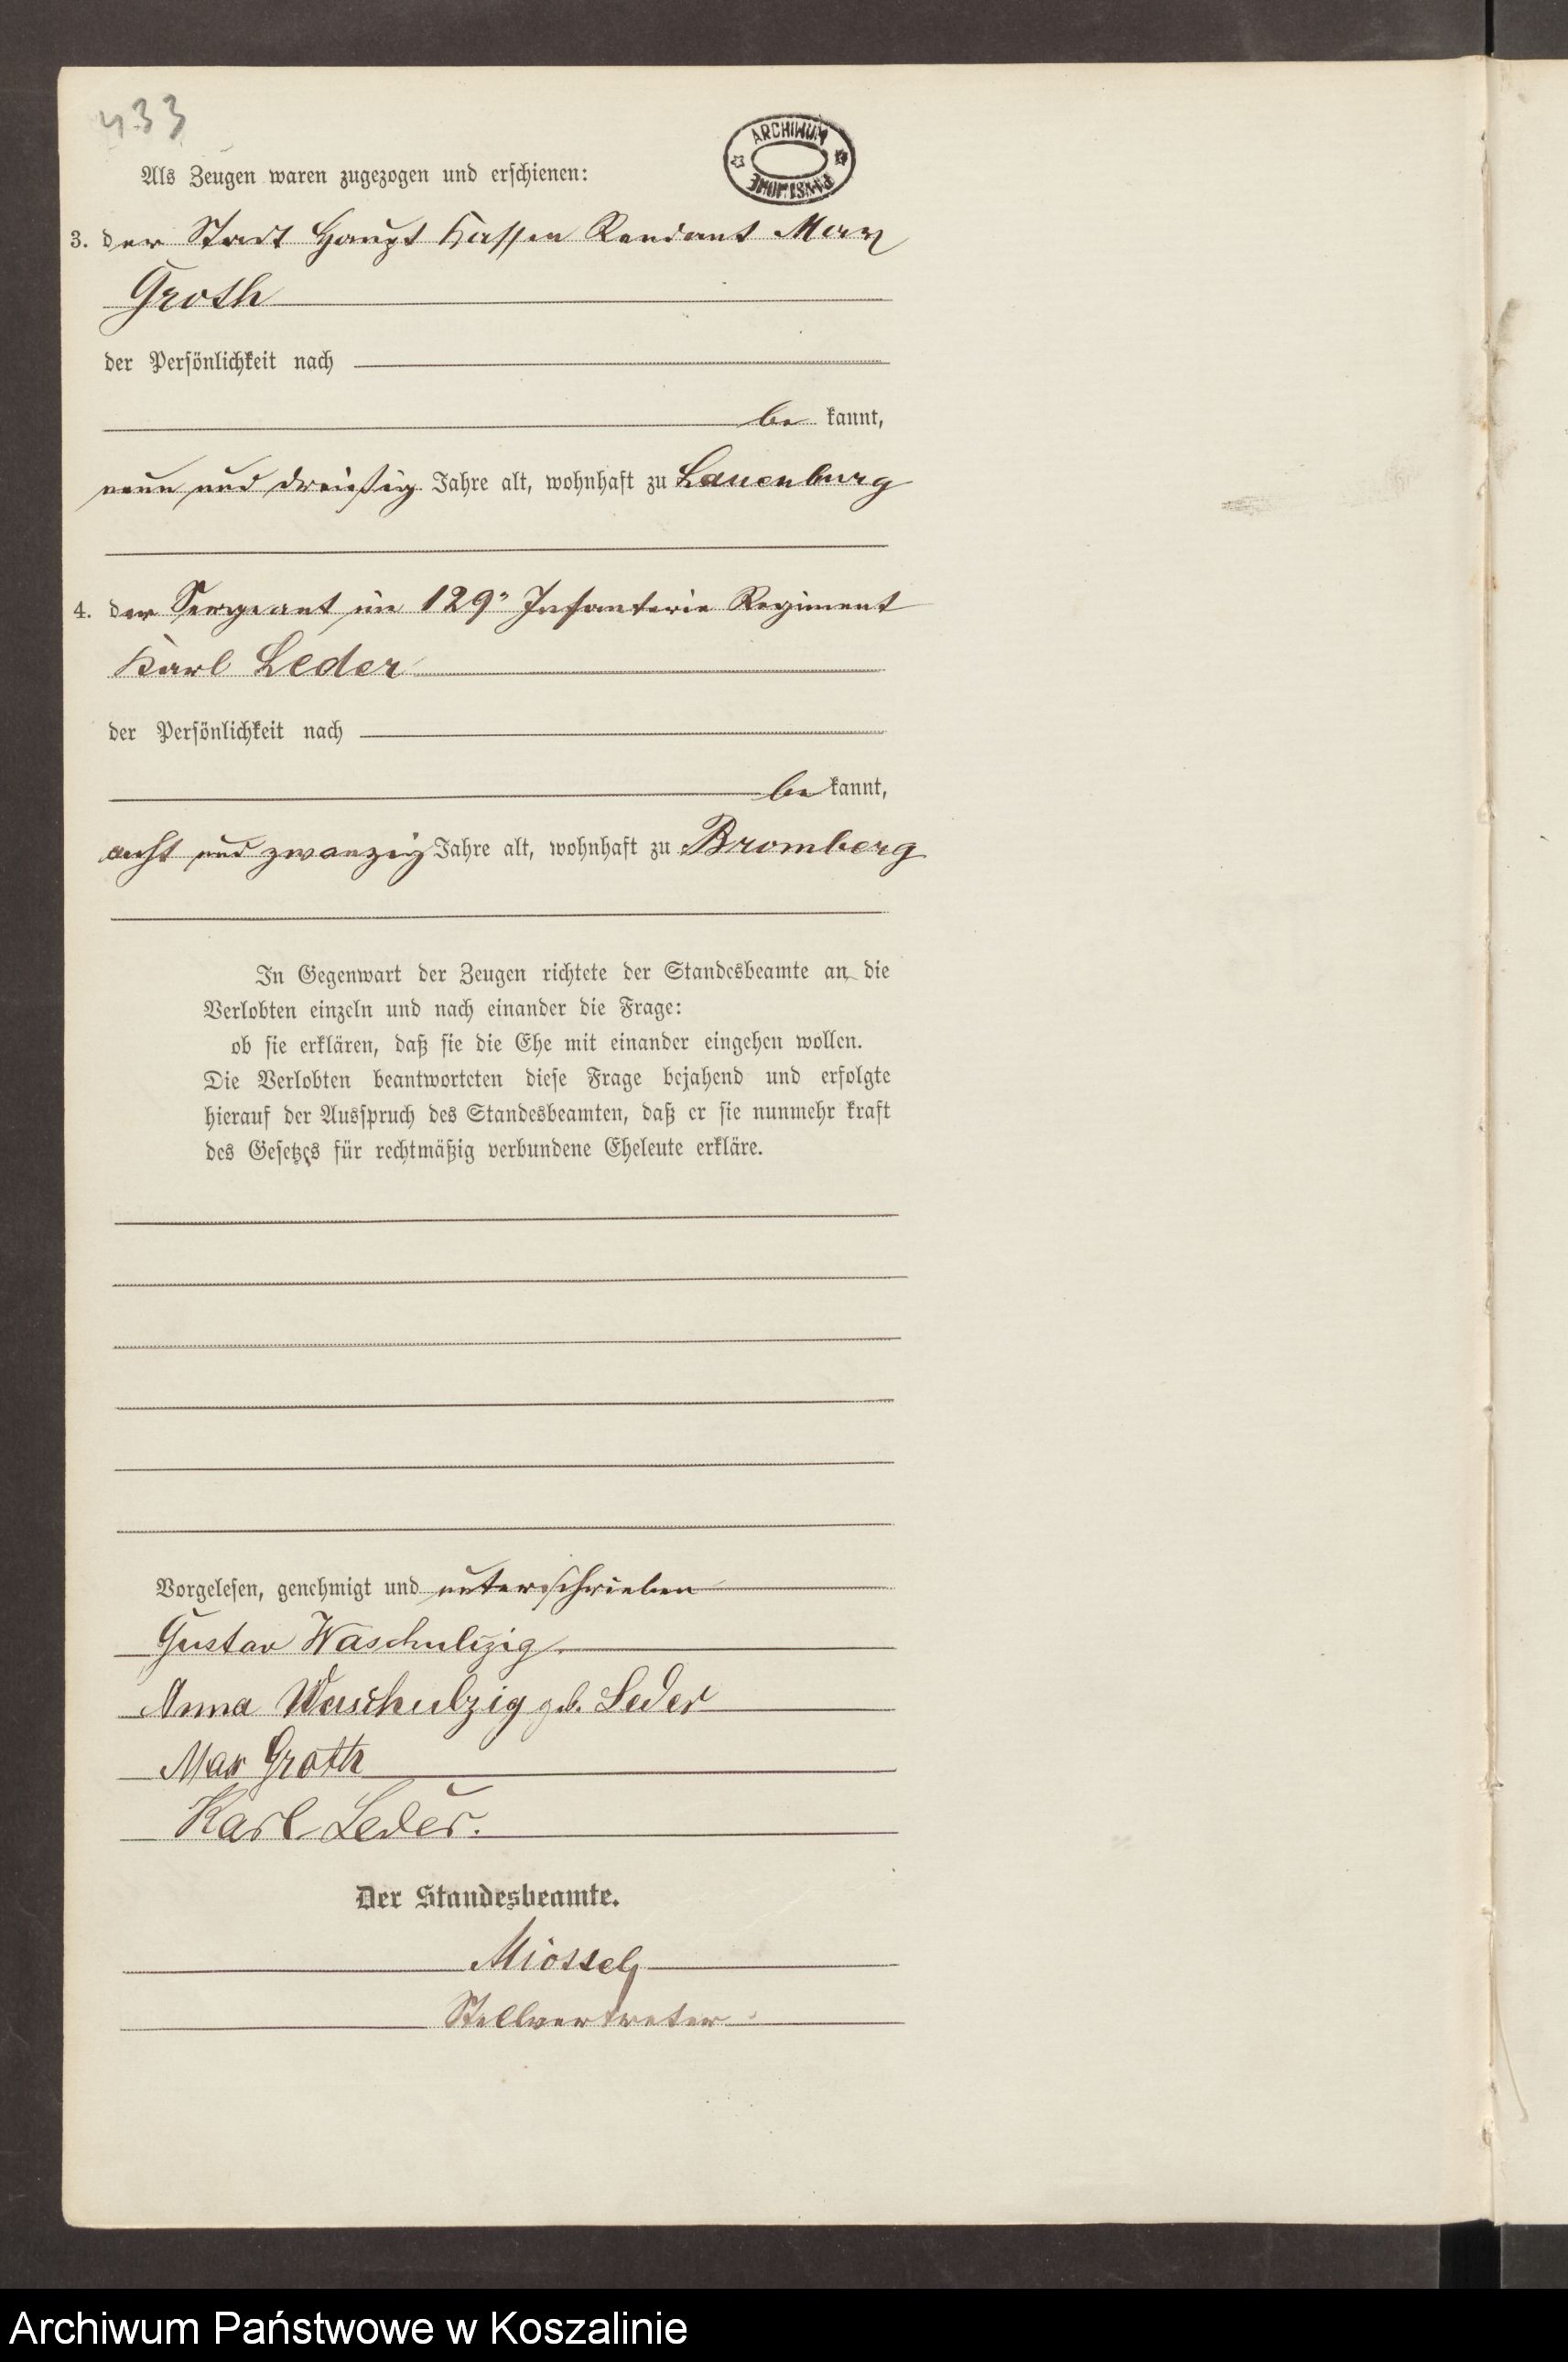 433
ARCHIWUM PAŃSTWOWE
Als Zeugen waren zugezogen und erschienen:
3. der Stadt Haupt Kassen Rendant Max
Groth
der Persönlichkeit nach
be kannt,
neun und dreißig Jahre alt, wohnhaft zu Lauenburg
4. der Sergeant im 129n Infanterie Regiment
Karl Leder
der Persönlichkeit nach
be kannt,
acht und zwanzig Jahre alt, wohnhaft zu Bromberg
In Gegenwart der Zeugen richtete der Standesbeamte an die
Verlobten einzeln und nach einander die Frage:
ob sie erklären, daß sie die Ehe mit einander eingehen wollen.
Die Verlobten beantworteten diese Frage bejahend und erfolgte
hierauf der Ausspruch des Standesbeamten, daß er sie nunmehr kraft
des Gesetzes für rechtmäßig verbundene Eheleute erkläre.
Vorgelesen, genehmigt und unterschrieben
Gustav Waschulzig.
Anna Waschulzig geb. Leder
Max Groth
Karl Leder.
Der Standesbeamte.
Stellvertreter
Archiwum Państwowe w Koszalinie